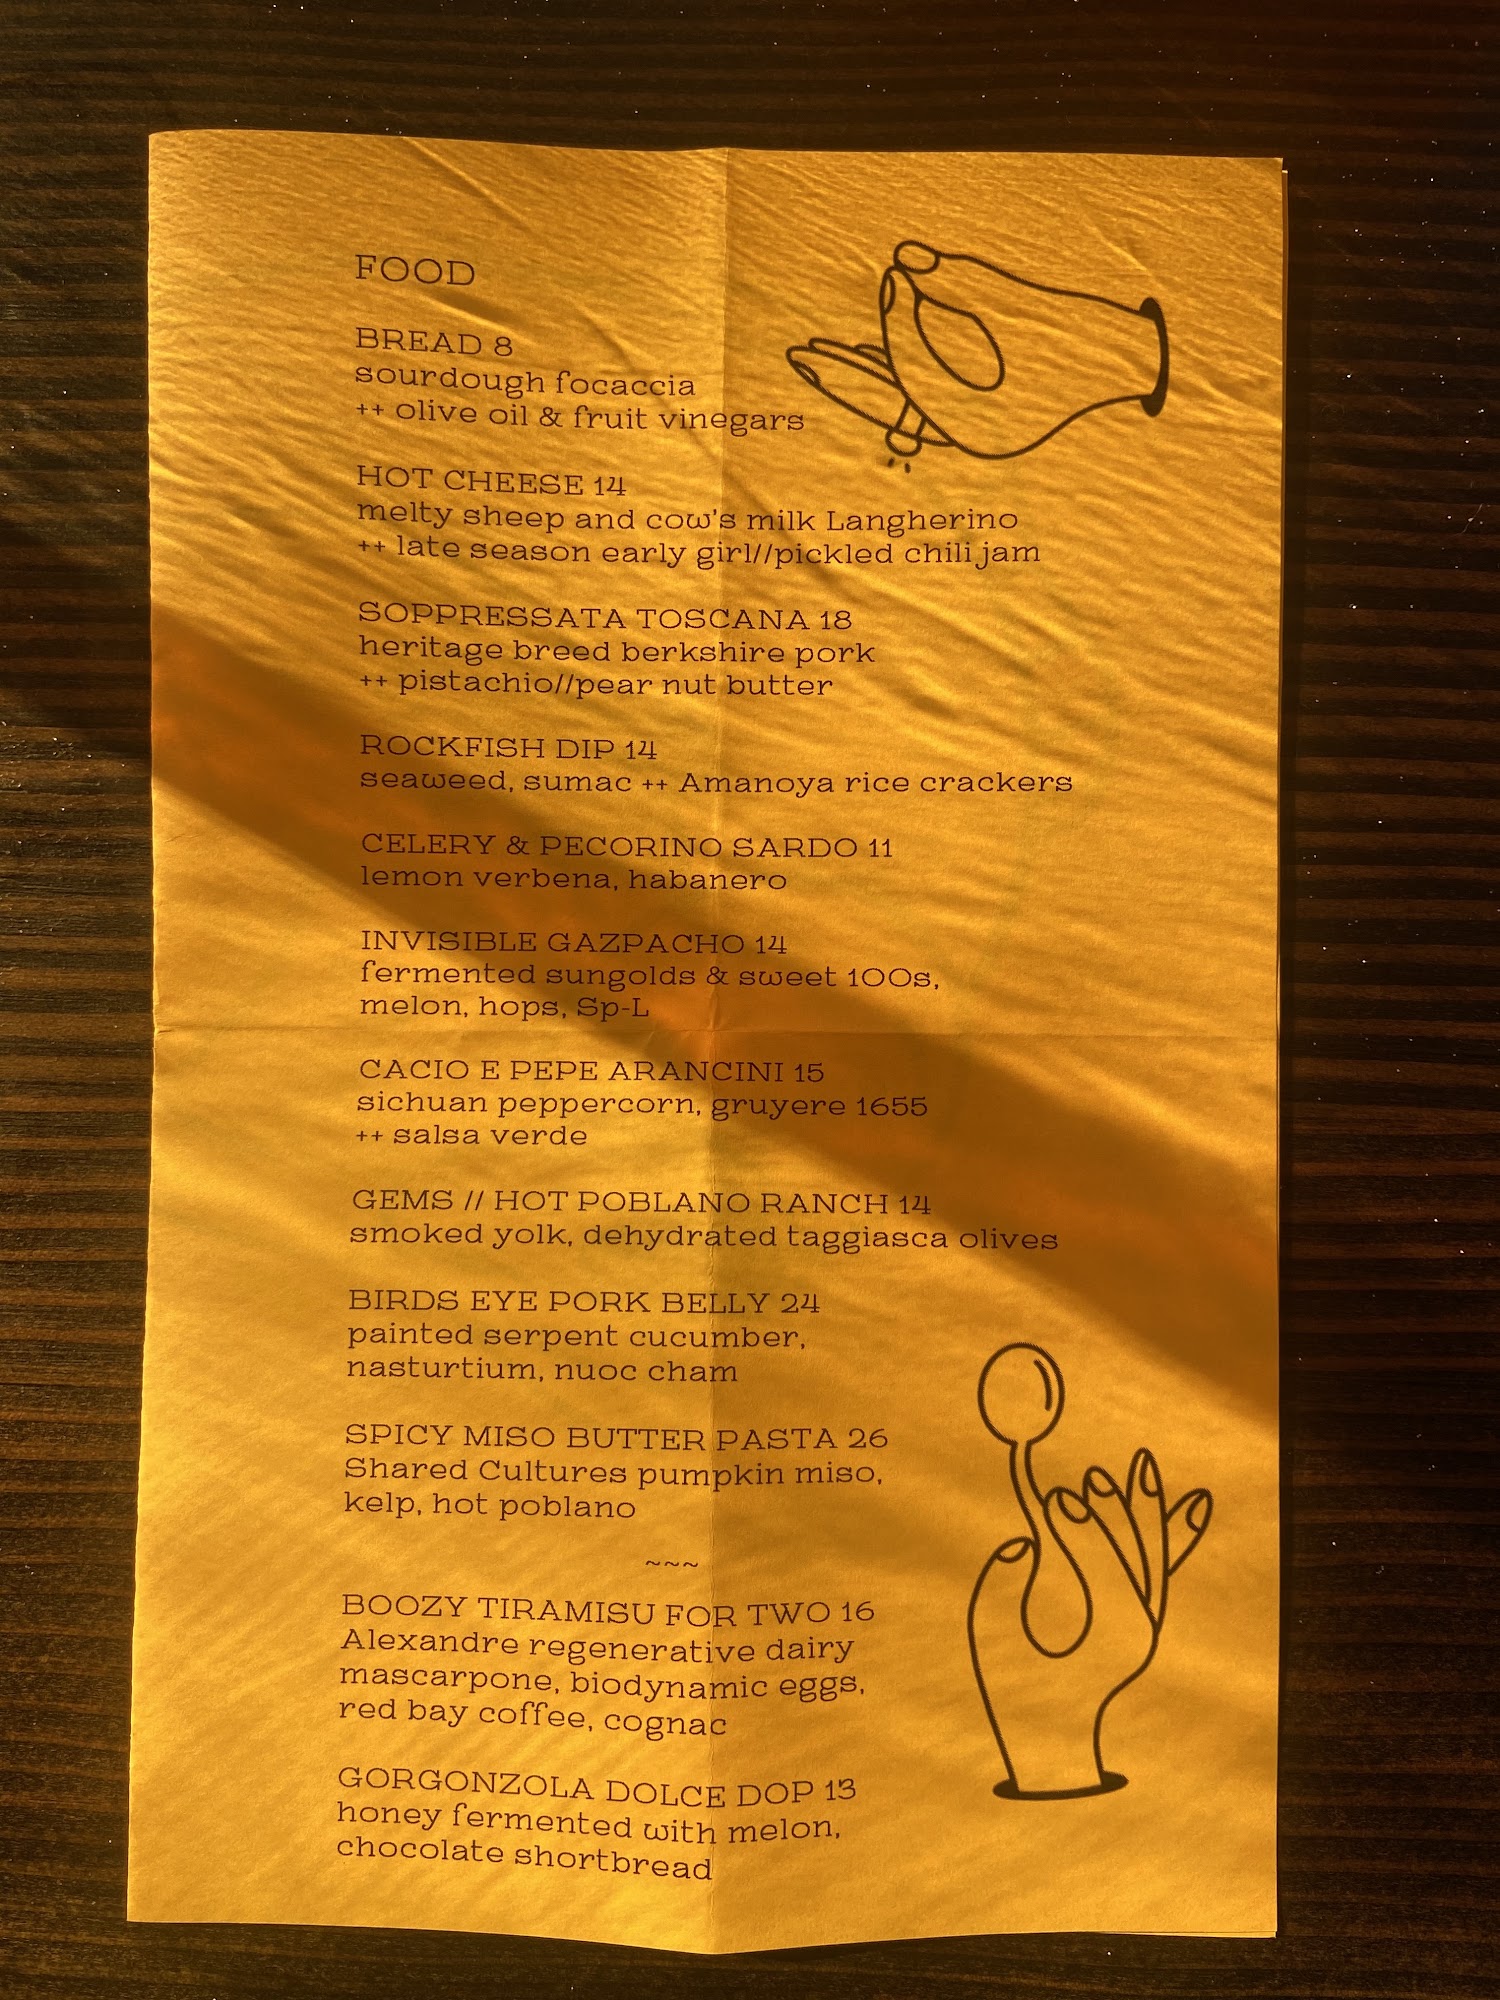 FOOD
BREAD 8
sourdough focaccia
++ olive oil & fruit vinegars
HOT CHEESE 14
melty sheep and cow's milk Langherino
++ late season early girl//pickled chili jam
SOPPRESSATA TOSCANA 18
heritage breed berkshire pork
++ pistachio//pear nut butter
ROCKFISH DIP 14
seaweed, sumac ++ Amanoya rice crackers
CELERY & PECORINO SARDO 11
lemon verbena, habanero
INVISIBLE GAZPACHO 14
fermented sungolds & sweet 100s,
melon, hops, Sp-L
CACIO E PEPE ARANCINI 15
sichuan peppercorn, gruyere 1655
++ salsa verde
GEMS // HOT POBLANO RANCH 14
smoked yolk, dehydrated taggiasca olives
BIRDS EYE PORK BELLY 24
painted serpent cucumber,
nasturtium, nuoc cham
SPICY MISO BUTTER PASTA 26
Shared Cultures pumpkin miso,
kelp, hot poblano
~~~
BOOZY TIRAMISU FOR TWO 16
Alexandre regenerative dairy
mascarpone, biodynamic eggs,
red bay coffee, cognac
GORGONZOLA DOLCE DOP 13
honey fermented with melon,
chocolate shortbread